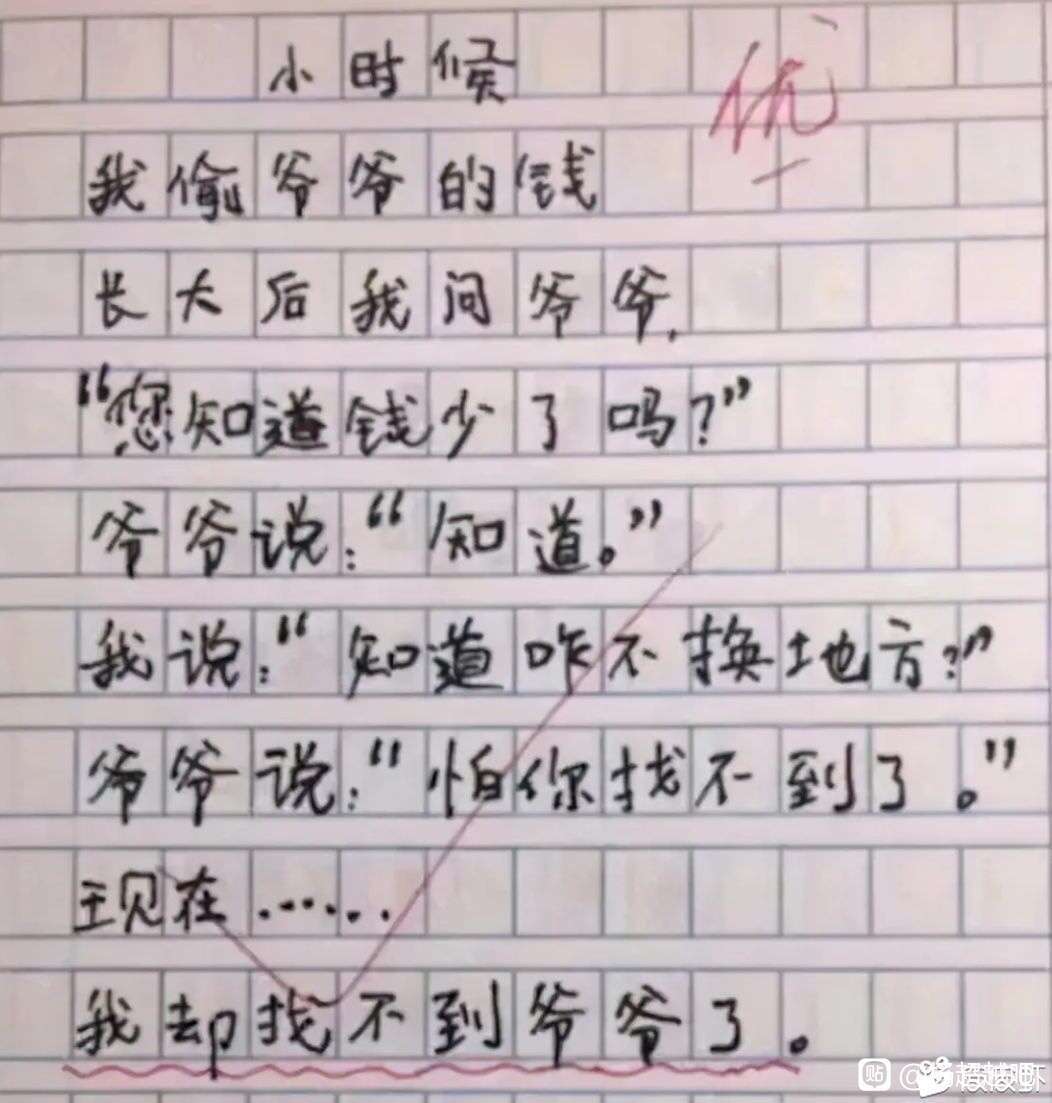 小时候
优
我偷爷爷的钱
长大后我问爷爷,
“您知道钱少了吗?”
爷爷说:“知道。”
我说:“知道咋不换地方?”
爷爷说:“怕你找不到了。”
现在······
我却找不到爷爷了。
贴